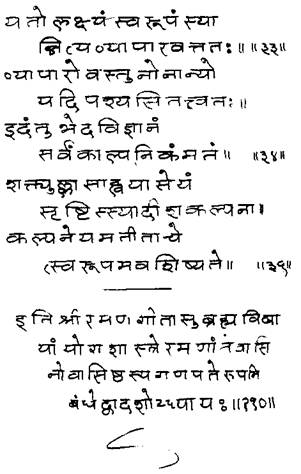 यतो लक्ष्यं स्वरूपं स्या
न्नित्यव्यापारवत्ततः॥॥३३॥
व्यापारो वस्तुनो नान्यो
यदि पश्यसि तत्त्वतः॥
इदंतु भेदविज्ञानं
सर्वं काल्पनिकं मतं॥ ॥३४॥
शक्त्युल्लासाह्वया सेयं
सृष्टिस्स्यादीशकल्पना।
कल्पनेयमतीता चे
त्स्वरूपमवशिष्यते॥ ॥३५॥
इति श्रीरमणगीतासु ब्रह्मविद्या
यां योगशास्त्रे रमणांतेवासि
नो वासिष्ठस्य गणपतेरुपनि
बंधे द्वादशोऽध्यायः॥